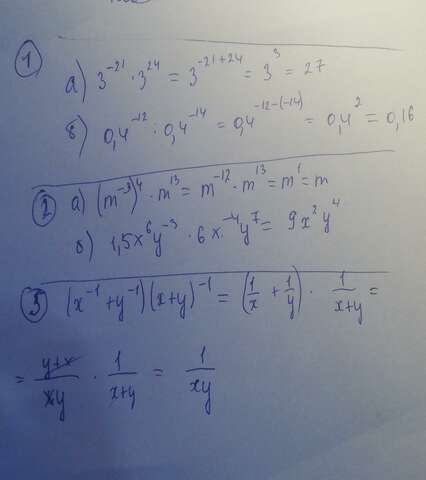 1
а) 3^-21 · 3^24 = 3^-21+24 = 3^3 = 27
б) 0,4^-12 : 0,4^-14 = 0,4^-12-(-14) = 0,4^2 = 0,16
2 а) (m^-3)^4 · m^13 = m^-12 · m^13 = m^1 = m
б) 1,5x^6y^-3 · 6x^-4y^7 = 9x^2y^4
3 (x^-1 + y^-1)(x+y)^-1 = (1/x + 1/y) · 1/(x+y) =
= (y+x)/(xy) · 1/(x+y) = 1/(xy)